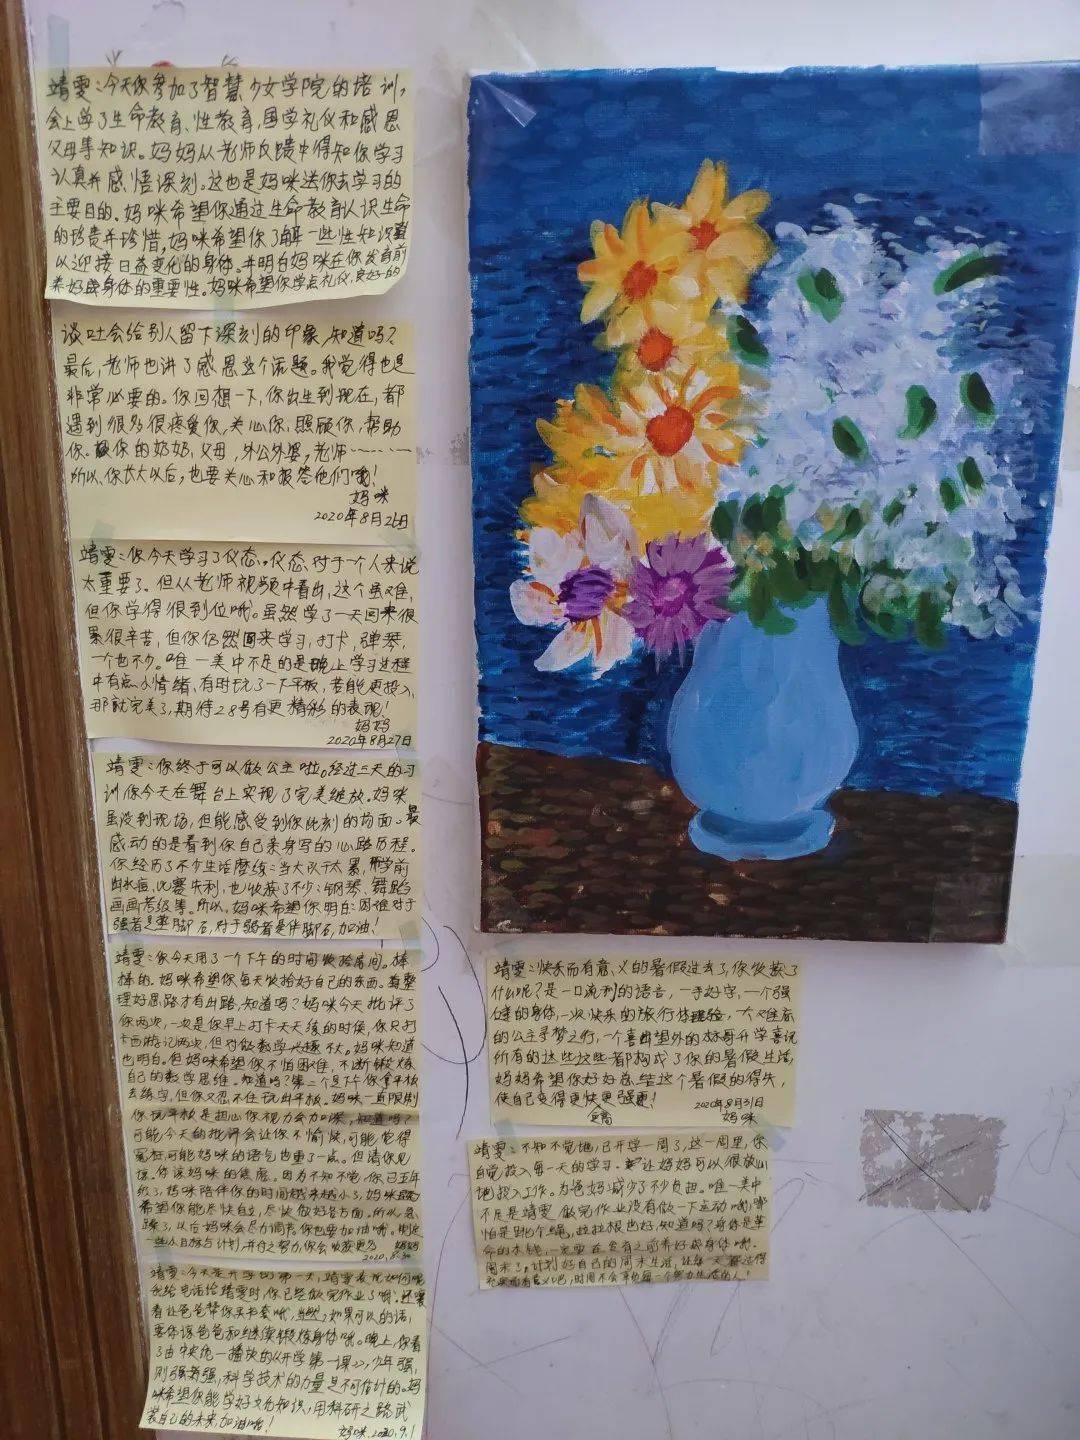 靖雯：今天你参加了智慧少女学院的培训，
会上学了生命教育、性教育，国学礼仪和感恩
父母等知识。妈妈从老师反馈中得知你学习
认真并感悟深刻。这也是妈咪送你去学习的
主要目的。妈咪希望你通过生命教育认识生命
的珍贵并珍惜，妈咪希望你了解一些性知识
以迎接日益变化的身体。并明白妈咪在你发育前
养好身体的重要性。妈咪希望你学点礼仪，良好的
谈吐会给别人留下深刻的印象，知道吗？
最后，老师也讲了感恩这个话题。我觉得也是
非常必要的。你回想一下，你出生到现在，都
遇到很多很疼爱你，关心你，照顾你，帮助
你。你的奶奶，父母，外公外婆，老师………
所以，你长大以后，也要关心和报答他们哦！
妈咪
2020年8月26日
靖雯：你今天学习了仪态。仪态对于一个人来说
太重要了。但从老师视频中看出，这个虽难，
但你学得很到位哦。虽然学了一天回来很
累很辛苦，但你仍然回来学习，打卡，弹琴，
一个也不少。唯一美中不足的是晚上学习过程
中有点小情绪，有时玩了一下平板，若能更投入，
那就完美了，期待28号有更精彩的表现！
妈妈
2020年8月27日
靖雯：你终于可以做公主啦。经过三天的习
训你今天在舞台上实现了完美绽放。妈咪
虽没到现场，但能感受到你此刻的场面。最
感动的是看到你自己亲身写的心路历程。
你经历了不少生活磨练：当大队干太累，学前
出水痘，比赛失利，也收获了不少：钢琴、舞蹈
画画考级等。所以，妈咪希望你明白：困难对于
强者是垫脚石，对于弱者是绊脚石，加油！
靖雯：你今天用了一个下午的时间收拾房间。棒
棒的。妈咪希望你每天收拾好自己的东西。有整
理好思路才有出路，知道吗？妈咪今天批评了
你两次，一次是你早上打卡天天练的时候，你只打
卡西游记两次，但对数学兴趣不大。妈咪知道
也明白。但妈咪希望你不怕困难，不断锻炼
自己的数学思维。知道吗？第二个是下午你拿平板
去练字，但你又忍不住玩平板。妈咪一直限制
你玩平板是担心你视力会加深，知道吗？
可能今天的批评会让你不愉快，可能觉得
冤枉可能妈咪的语气也重了一点。但请你见
谅。体谅妈咪的焦虑。因为不知不觉，你已五年
级了，妈咪陪伴你的时间越来越小了，妈咪
希望你能尽快自立，尽快做好各方面。所以急
躁了，以后妈咪会尽力调节，你也要加油哦。制定
一些小目标与计划，并付之努力，你会收获更多 妈妈
2020.8.30
靖雯：今天是开学的第一天，靖雯表现如何呢
我给电话给靖雯时，你已经做完作业了哦。还要
看让爸爸帮你买书套哦，当然，如果可以的话，
要体谅爸爸和继续锻炼身体哦。晚上，你看
了由中央统一播放的《开学第一课》，少年强，
则强国强，科学技术的力量是不可估计的。妈
咪希望你能学好文化知识，用科研之路武
装自己的未来，加油哦！
妈咪.2020.9.1
靖雯：快乐而有意义的暑假过去了，你收获了
什么呢？是一口流利的语言，一手好字，一个强
健的身体，一次快乐的旅行体验，一次难忘
的公主寻梦之行，一个喜出望外的开学喜讯
所有的这些这些都构成了你的暑假生活，
妈妈希望你好好总结这个暑假的得失，
使自己变得更快更高更强！
2020年8月31日
妈咪
靖雯：不知不觉地，已开学一周了，这一周里，你
自觉投入每一天的学习。让妈妈可以很放心
地投入工作。为爸妈减少了不少负担。唯一美中
不足是靖雯做完作业没有做一下运动哦，哪
怕是跳个绳，拉拉根也好，知道吗？身体是革
命的本钱，一定要在发育之前养好身体哦。
周末了，计划好自己的周末生活，让每一天都过得
充实而有意义吧，时间不会辜负每一个努力生活的人！